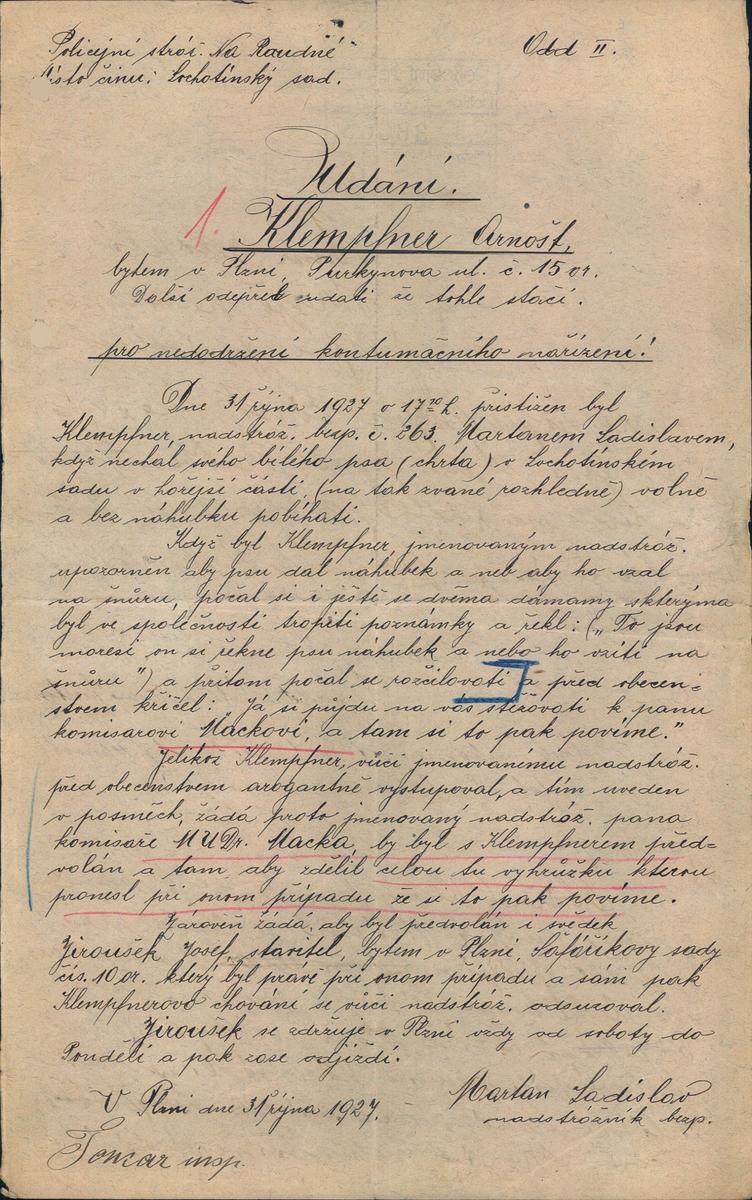 Policejní stráž. Na Roudné Odd II.
Místo činu: Lochotínský sad.
Udání.
1. Klempfner Arnošt,
bytem v Plzni, Purkyňova ul. č. 15 or.
Další odepřel udati že tohle stačí.
pro nedodržení kontumačního nařízení!
Dne 31 října 1927 o 17 20 h. přistižen byl
Klempfner, nadstráž. bezp. č. 263. Martanem Ladislavem,
když nechal svého bílého psa (chrta) v Lochotínském
sadu v hořejší části, (na tak zvané rozhledně) volně
a bez náhubku pobíhati.
Když byl Klempfner, jmenovaným nadstráž.
upozorněn aby psu dal náhubek a neb aby ho vzal
na šnůru, počal si i ještě se dvěma dámamy skterýma
byl ve společnosti tropiti poznámky a řekl: („To jsou
moresi on si řekne psu náhubek a nebo ho vzíti na
šnůru") a přitom počal se rozčilovati a před obecen-
stvem křičel: „Já si půjdu na vás stěžovati k panu
komisarovi Mackovi, a tam si to pak povíme."
Jelikož Klempfner, vůči jmenovanému nadstráž.
před obecenstvem arogantně vystupoval, a tím uveden
v posměch, žádá proto jmenovaný nadstráž. pana
komisaře MUDr. Macka, by byl s Klempfnerem před=
volán a tam, aby zdělil celou tu vyhrůžku kterou
pronesl při onom případu že si to pak povíme.
Zároveň žádá, aby byl předvolán i svědek
Jiroušek Josef, stavitel, bytem v Plzni, Šafaříkovy sady
čís. 10 or. který byl právě při onom případu a sám pak
Klempfnerovo chování se vůči nadstráž. odsuzoval.
Jiroušek se zdržuje v Plzni vždy od soboty do
Pondělí a pak zase odjíždí.
V Plzni dne 31 října 1927. - Martan Ladislav
nadstrážník bezp.
insp.